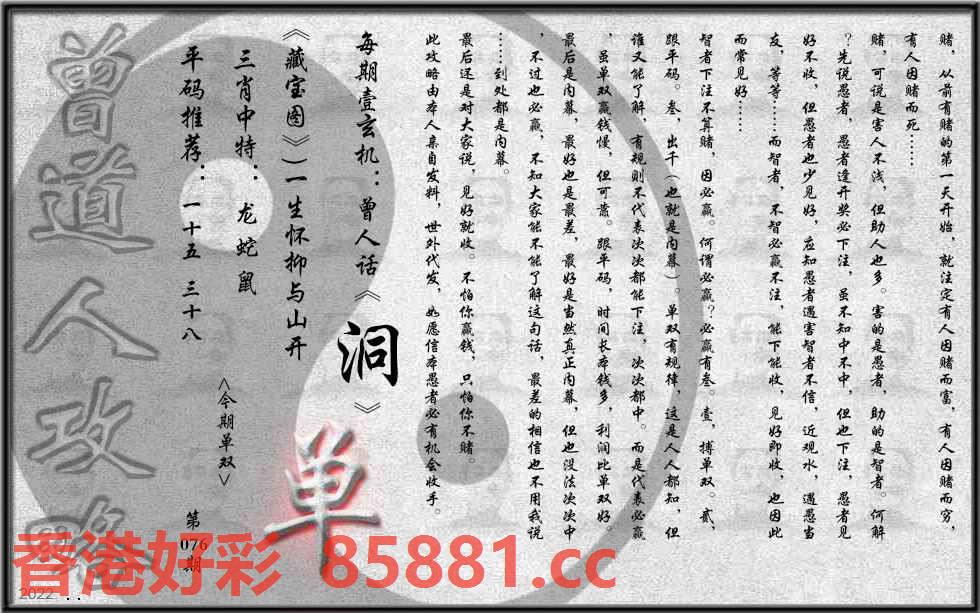 赌，从前有赌的第一天开始，就注定有人因赌而富，有人因赌而穷，
有人因赌而死……
赌，可说是害人不浅，但助人也多。害的是愚者，助的是智者。何解
？先说愚者，愚者逢开奖必下注，虽不知中不中，但也下注，愚者见
好不收，但愚者也少见好，应知愚者遇害智者不信，近观水，遇愚当
友，等等……而智者，不智必赢不注，能下能收，见好即收，也因此
而常见好……
智者下注不算赌，因必赢。何谓必赢？必赢有叁。壹，搏单双。贰，
跟平码。叁，出千（也就是内幕）。单双有规律，这是人人都知，但
谁又能了解，有规则不代表次次都能下注，次次都中。而是代表必赢
，虽单双赢钱慢，但可靠。跟平码，时间长本钱多，利润比单双好。
最后是内幕，最好也是最差，最好是当然真正内幕，但也没法次次中
，不过也必赢，不知大家能不能了解这句话，最差的相信也不用我说
……到处都是内幕。
最后还是对大家说，见好就收。不怕你赢钱，只怕你不赌。
此攻略由本人亲自发料，世外代发，如愿信本愚者必有机会收手。
每期壹玄机：曾人话《洞》
《藏宝图》(一生怀抑与山开
三肖中特：龙蛇鼠
平码推荐：一十五 三十八
<今期单双>
单
第
076
期
曾道人攻略
香港好彩 85881.cc
2022